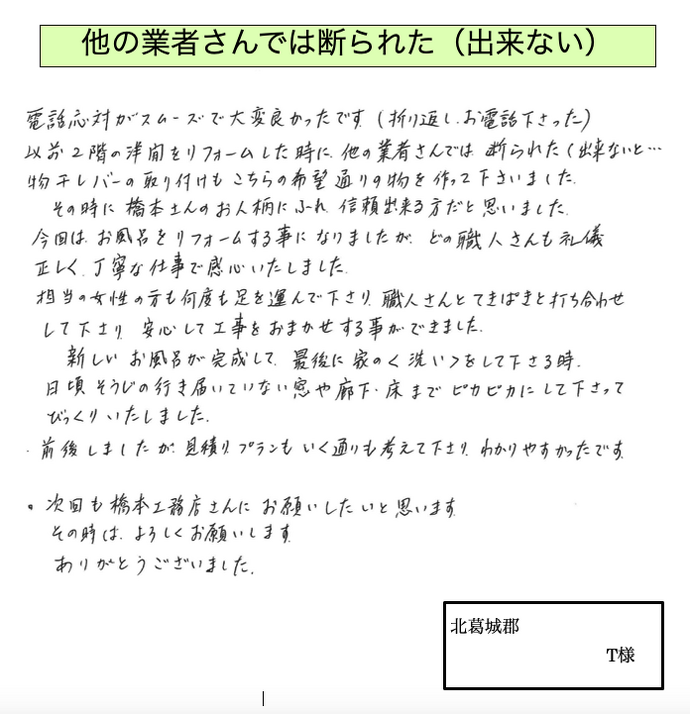 他の業者さんでは断られた（出来ない）
電話応対がスムーズで大変良かったです。（折り返しお電話下さった）
以前2階の洋間をリフォームした時に、他の業者さんでは、断られた（出来ないと…
物干しバーの取り付けもこちらの希望通りの物を作って下さいました。
その時に橋本さんのお人柄にふれ、信頼出来る方だと思いました。
今回は、お風呂をリフォームする事になりましたが、どの職人さんも礼儀
正しく、丁寧な仕事で感心いたしました。
担当の女性の方も何度も足を運んで下さり、職人さんとてきぱきと打ち合わせ
して下さり、安心して工事をおまかせする事ができました。
新しいお風呂が完成して、最後に家のく洗い＞をして下さる時、
日頃そうじの行き届いていない窓や廊下・床までピカピカにして下さって
びっくりいたしました。
・前後しましたが、見積り、プランもいく通りも考えて下さり、わかりやすかったです。
・次回も橋本工務店さんにお願いしたいと思います。
その時は、よろしくお願いします。
ありがとうございました。
北葛城郡
T様